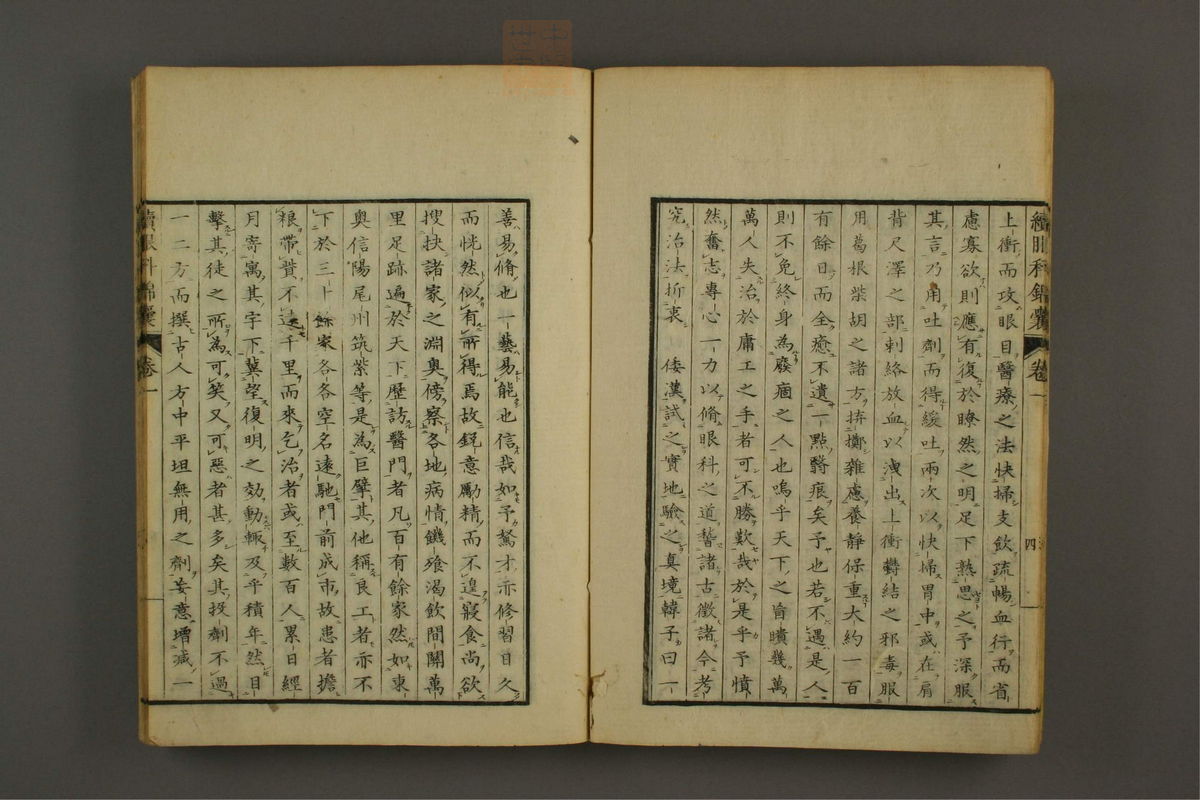 續眼科錦囊 卷一 四
上衝而攻眼目醫療之法快掃支飲疏暢血行而省
慮寡欲則應有復於瞭然之明足下熟思之予深服
其言乃用吐劑而得緩吐兩次以快掃胃中或在肩
背尺澤之部刺絡放血以洩出上衝鬱結之邪毒服
用葛根柴胡之諸方拚擲雜慮養靜保重大約一百
有餘日而全癒不遺一點翳痕矣予也若不遇是人
則不免終身為廢痼之人也嗚乎天下之盲瞶幾萬
萬人失治於庸工之手者可不勝歎哉於是乎予憤
然奮志專心一力以脩眼科之道稽諸古徵諸今考
究治法折衷 倭漢試之實地驗之真境韓子曰一
善易脩也一藝易能也信哉如予駑才亦修習日久
而恍然似有所得焉故銳意勵精而不遑寢食尚欲
搜抉諸家之淵奧傍察各地病情饑飧渴飲間關萬
里足跡遍於天下歷訪醫門者凡百有餘家然如東
奧信陽尾州筑紫等是為巨擘其他稱良工者亦不
下於三十餘家各各空名遠馳門前成市故患者擔
粮帶貲不遠千里而來乞治者或至數百人累日經
月寄寓其宇下冀望復明之効動輒及乎積年然目
擊其徒之所為可笑又可惡者甚多矣其投劑不過
一二方而撰古人方中平坦無用之劑妄意增減一
續眼科錦囊 卷一